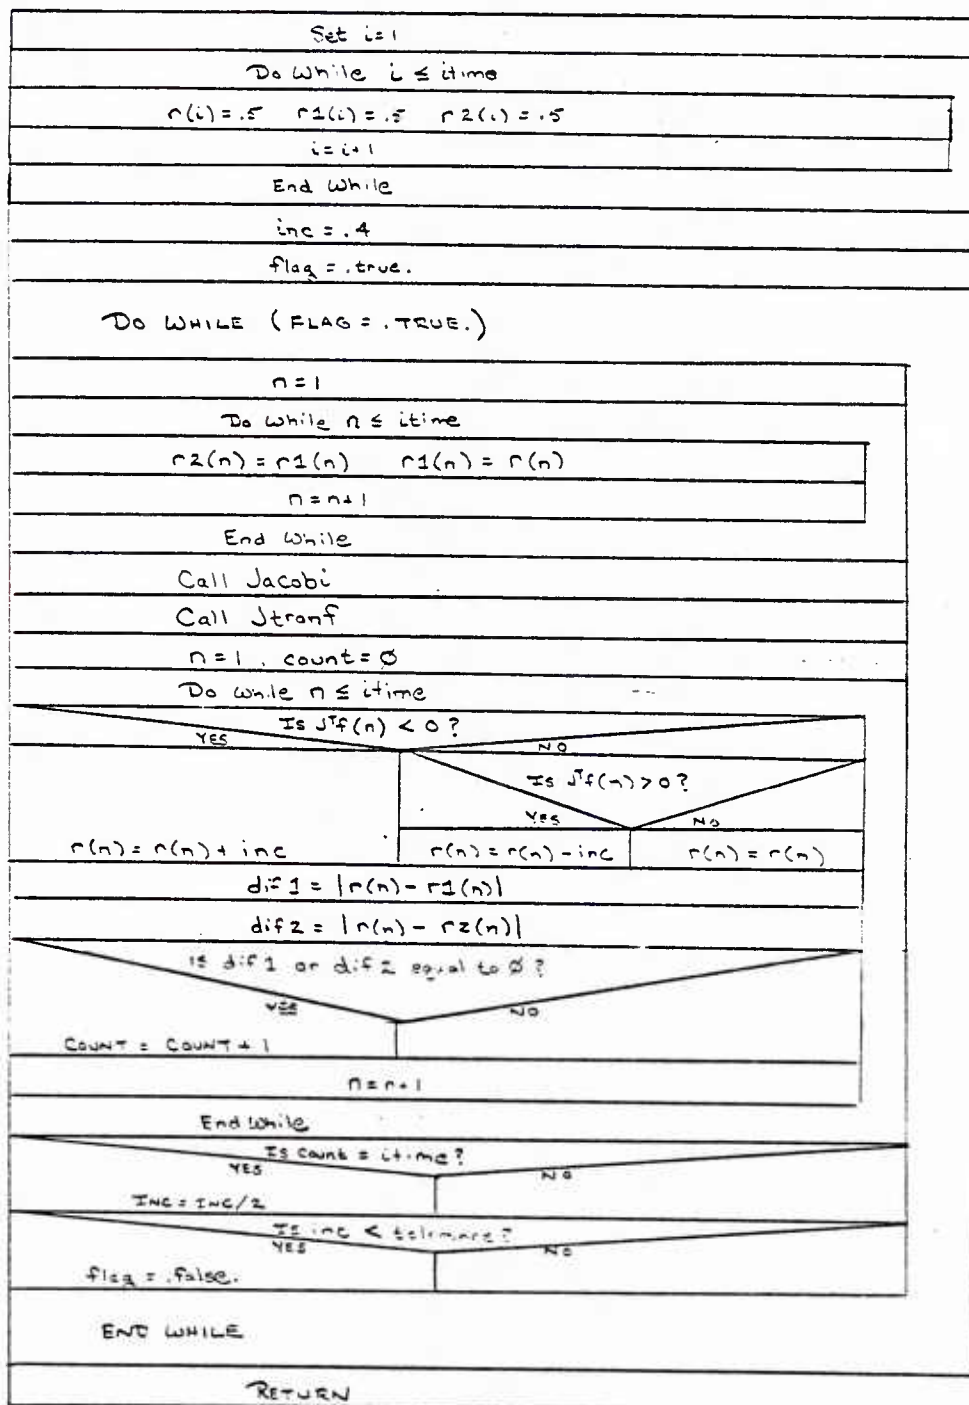 Set i=1
Do While i ≤ itime
r(i)=.5 r1(i)=.5 r2(i)=.5
i=i+1
End While
inc=.4
flag=.true.
DO WHILE (FLAG=.TRUE.)
n=1
Do While n ≤ itime
r2(n)=r1(n) r1(n)=r(n)
n=n+1
End While
Call Jacobi
Call Jtranf
n=1, count=Ø
Do While n ≤ itime
Is Jᵀf(n) < 0?
YES NO
Is Jᵀf(n) > 0?
YES NO
r(n)=r(n)+inc r(n)=r(n)-inc r(n)=r(n)
dif1=|r(n)-r1(n)|
dif2=|r(n)-r2(n)|
Is dif1 or dif2 equal to Ø?
YES NO
COUNT = COUNT + 1
n=n+1
End While
Is count = itime?
YES NO
INC=INC/2
Is inc < tolerance?
YES NO
flag=.false.
END WHILE
RETURN